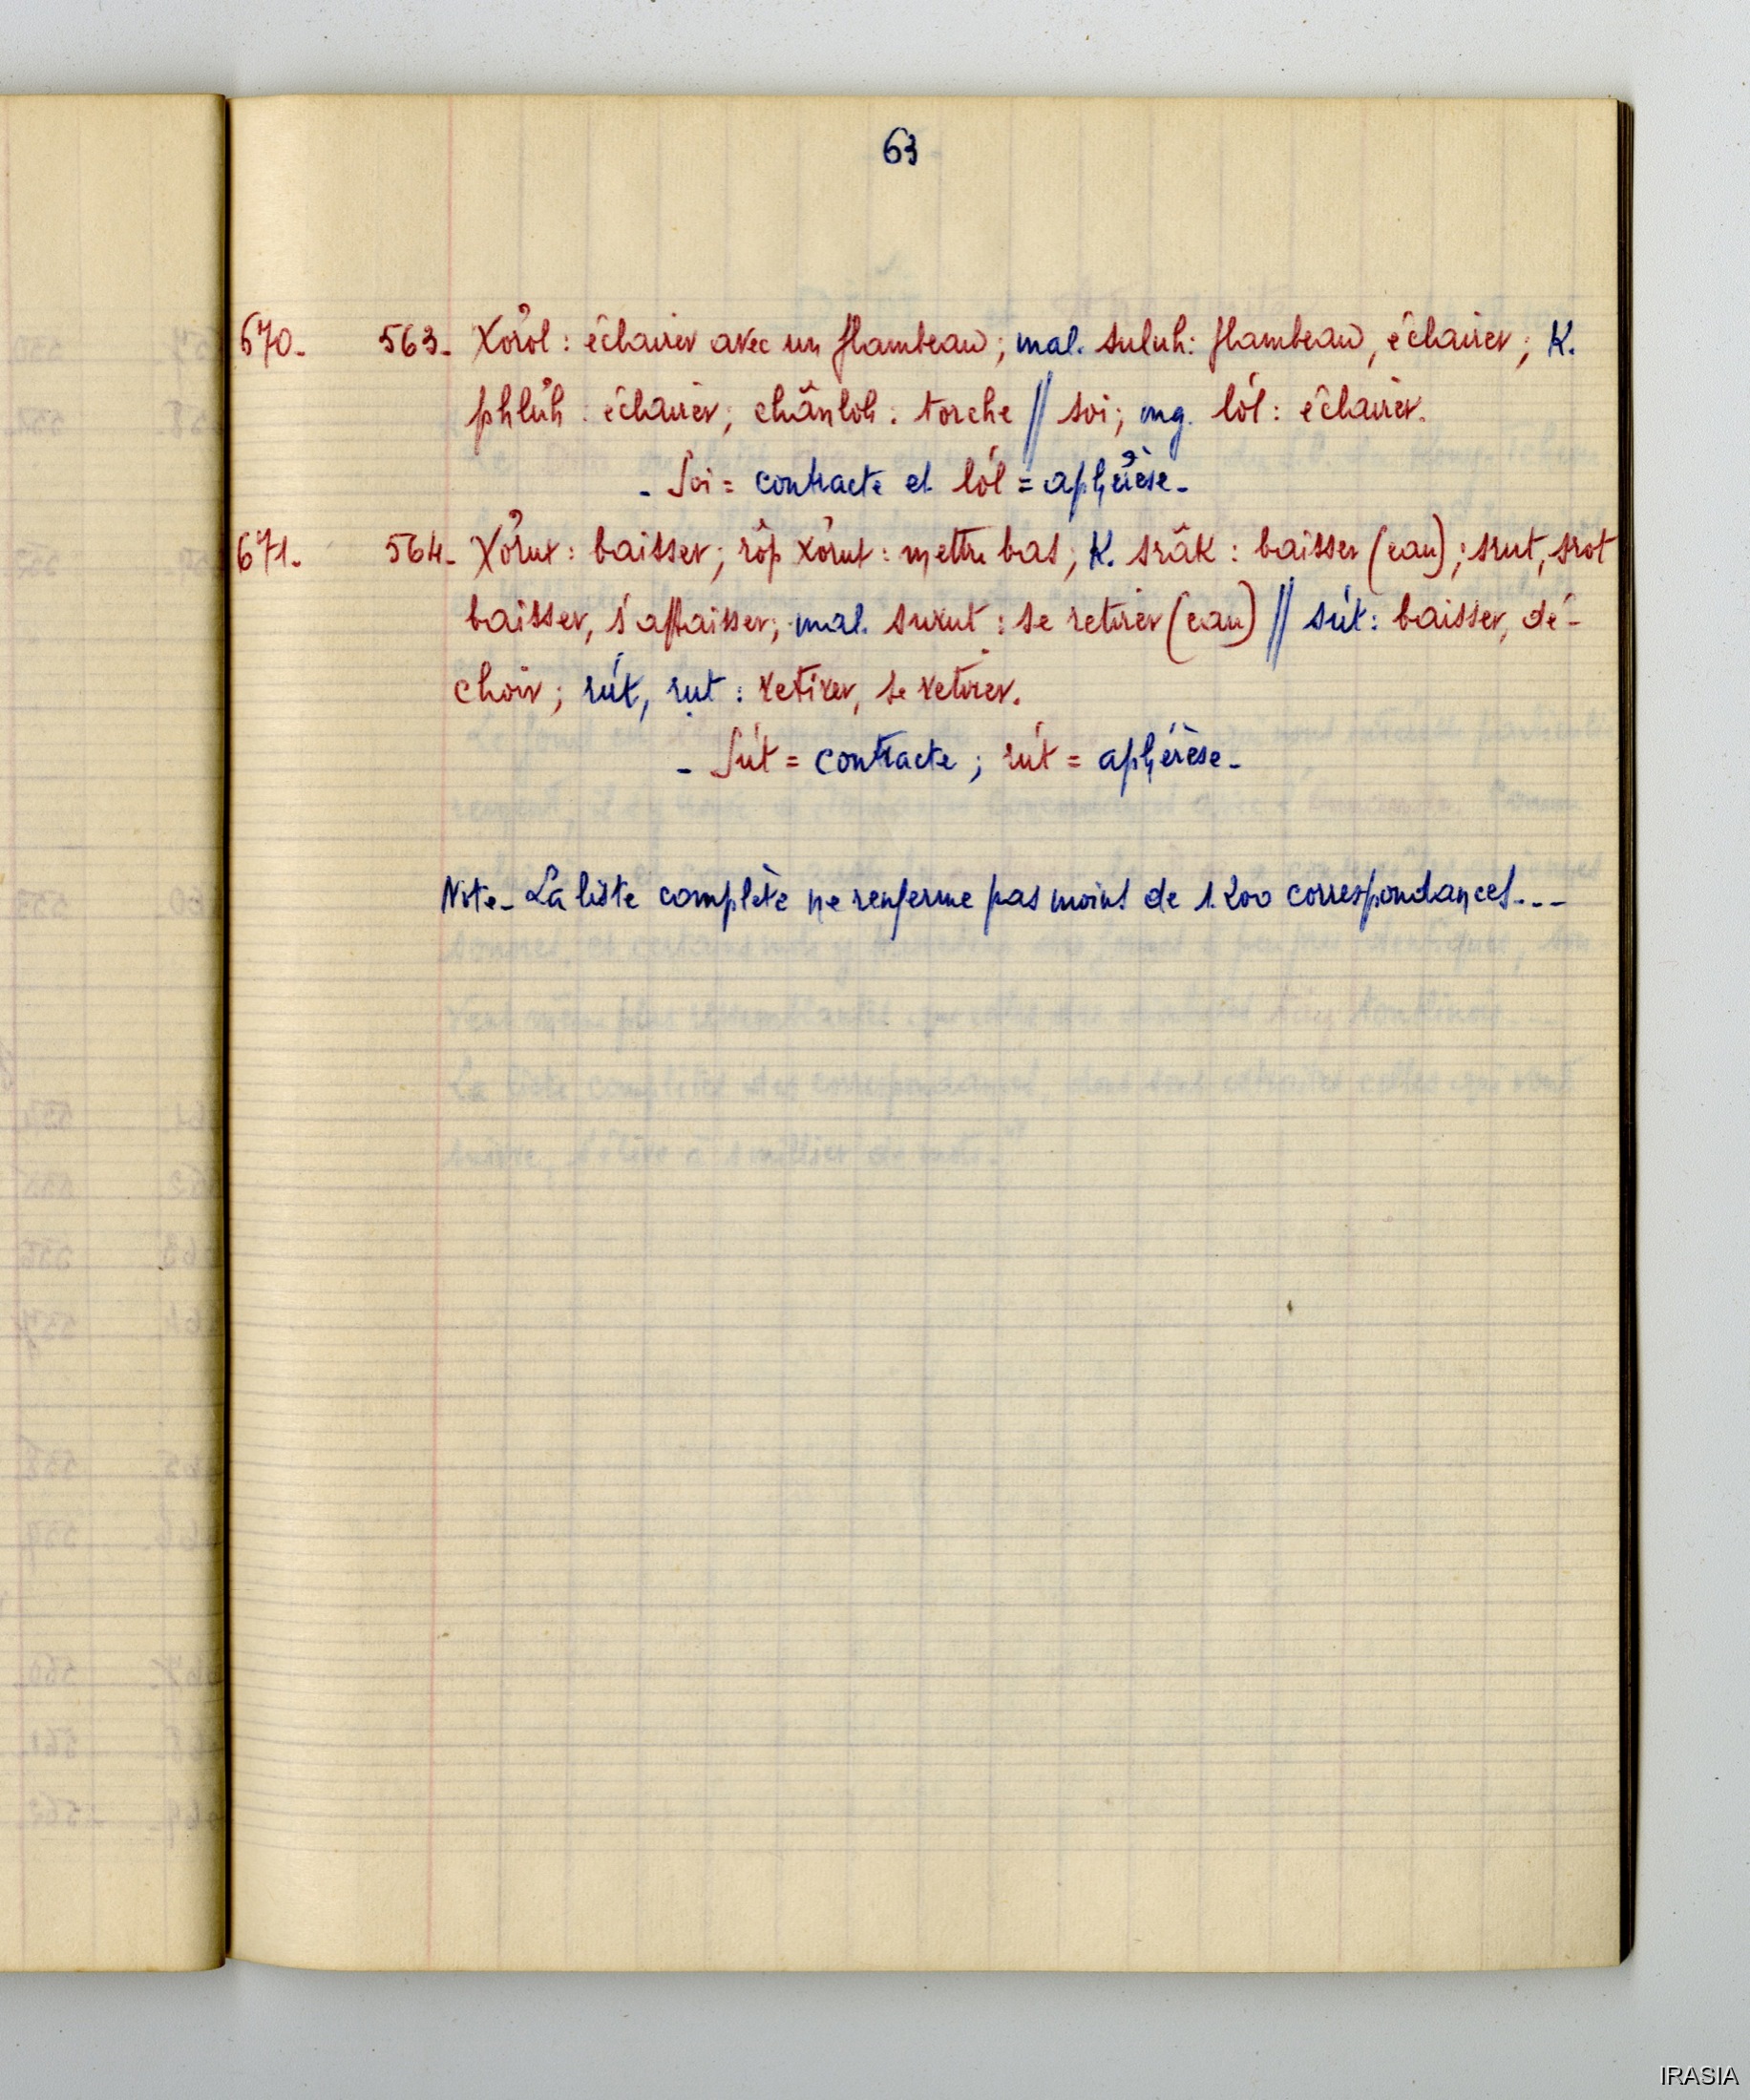 63
670. 563. Xơrol : éclairer avec un flambeau ; mal. suluh : flambeau, éclairer ; K.
phlŭh : éclairer ; chânloh : torche // soi ; mg. lól : éclairer.
- Soi = contracte et lól = aphérèse -
671. 564. Xơrut : baisser ; rôp xơrut : mettre bas ; K. srâk : baisser (eau) ; srut, srot
baisser, s'affaisser ; mal. surut : se retirer (eau) // sút : baisser, dé-
choir ; rút, rụt : retirer, se retirer.
- Sút = contracte ; rút = aphérèse -
Note - La liste complète ne renferme pas moins de 1.200 correspondances...
IRASIA